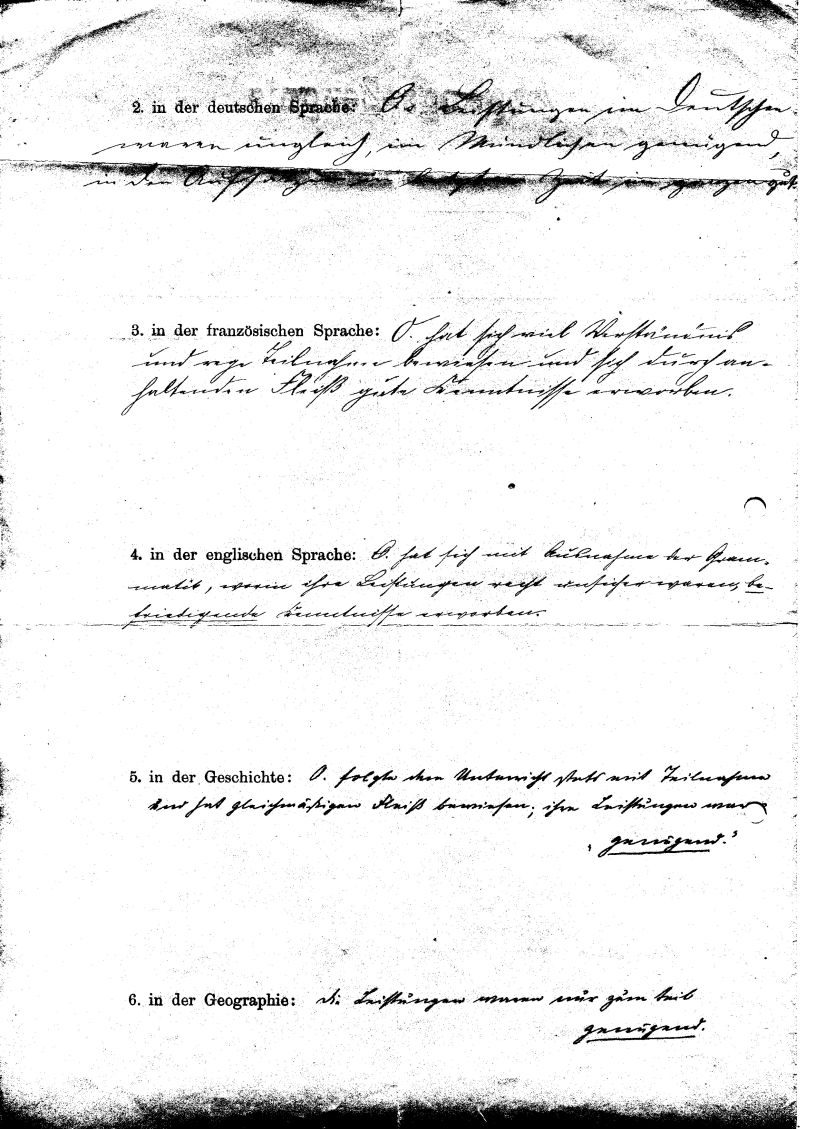 2. in der deutschen Sprache: O.s Leistungen im Deutschen
waren ungleich, im Mündlichen genügend,
in den Aufsätzen in letzter Zeit im ganzen gut.
3. in der französischen Sprache: O. hat sich viel Verständnis
und rege Teilnahme bewiesen und sich durch an-
haltenden Fleiß gute Kenntnisse erworben.
4. in der englischen Sprache: O. hat sich mit Ausnahme der Gram-
matik, worin ihre Leistungen recht unsicher waren, be-
friedigende Kenntnisse erworben.
5. in der Geschichte: O. folgte dem Unterricht stets mit Teilnahme
und hat gleichmäßigen Fleiß bewiesen; ihre Leistungen waren
„genügend.“
6. in der Geographie: die Leistungen waren nur zum teil
genügend.